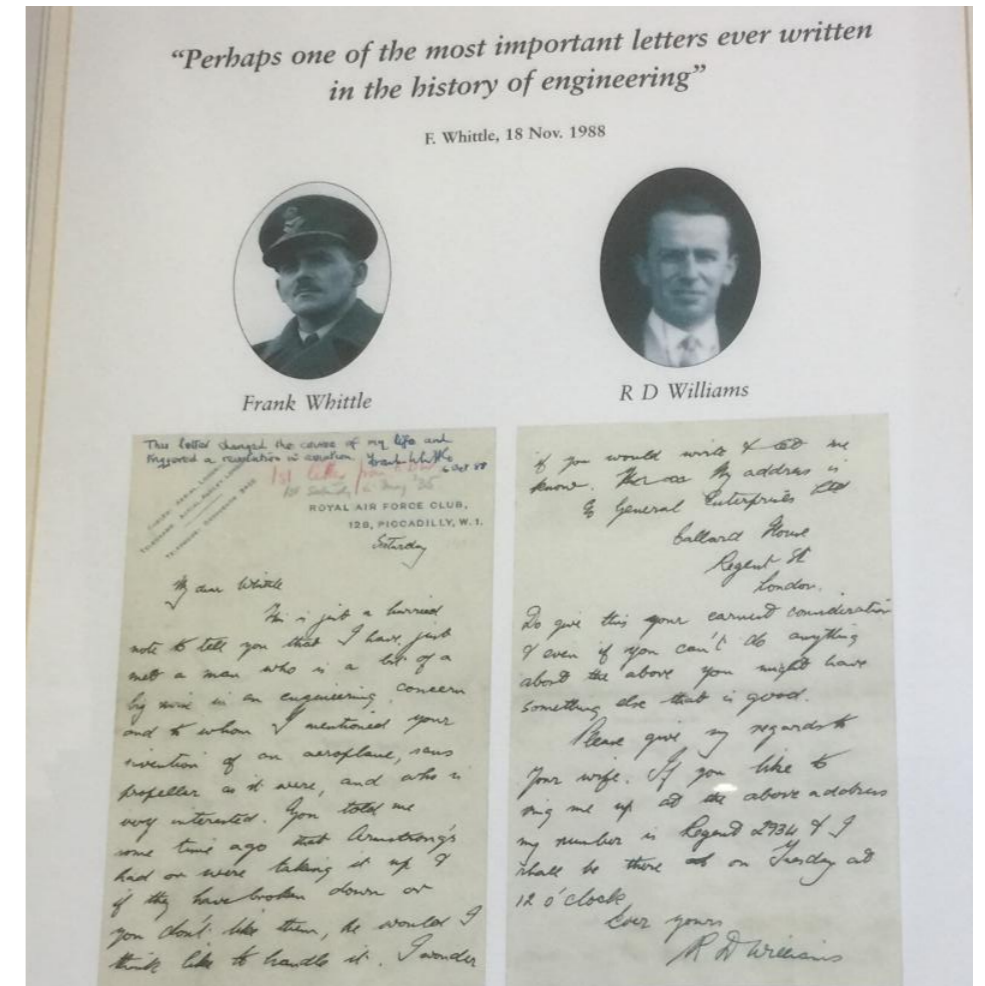 “Perhaps one of the most important letters ever written
in the history of engineering”
F. Whittle, 18 Nov. 1988
Frank Whittle
R D Williams
This letter changed the course of my life and
triggered a revolution in aviation. Frank Whittle
6 Oct 88
1st letter from RDW
1st Saturday in May '35
ROYAL AIR FORCE CLUB,
128, PICCADILLY, W.1.
Saturday
My dear Whittle
This is just a hurried
note to tell you that I have just
met a man who is a bit of a
big noise in an engineering concern
and to whom I mentioned your
invention of an aeroplane, sans
propeller as it were, and who is
very interested. You told me
some time ago that Armstrong's
had or were taking it up &
if they have broken down or
you don't like them, he would I
think like to handle it. I wonder
if you would write & let me
know. My address is
General Enterprises Ltd
Callard House
Regent St
London.
Do give this your earnest consideration
& even if you can't do anything
about the above you might have
something else that is good.
Please give my regards to
your wife. If you like to
ring me up at the above address
my number is Regent 2934 & I
shall be there on Tuesday at
12 o'clock
Ever yours
R D Williams